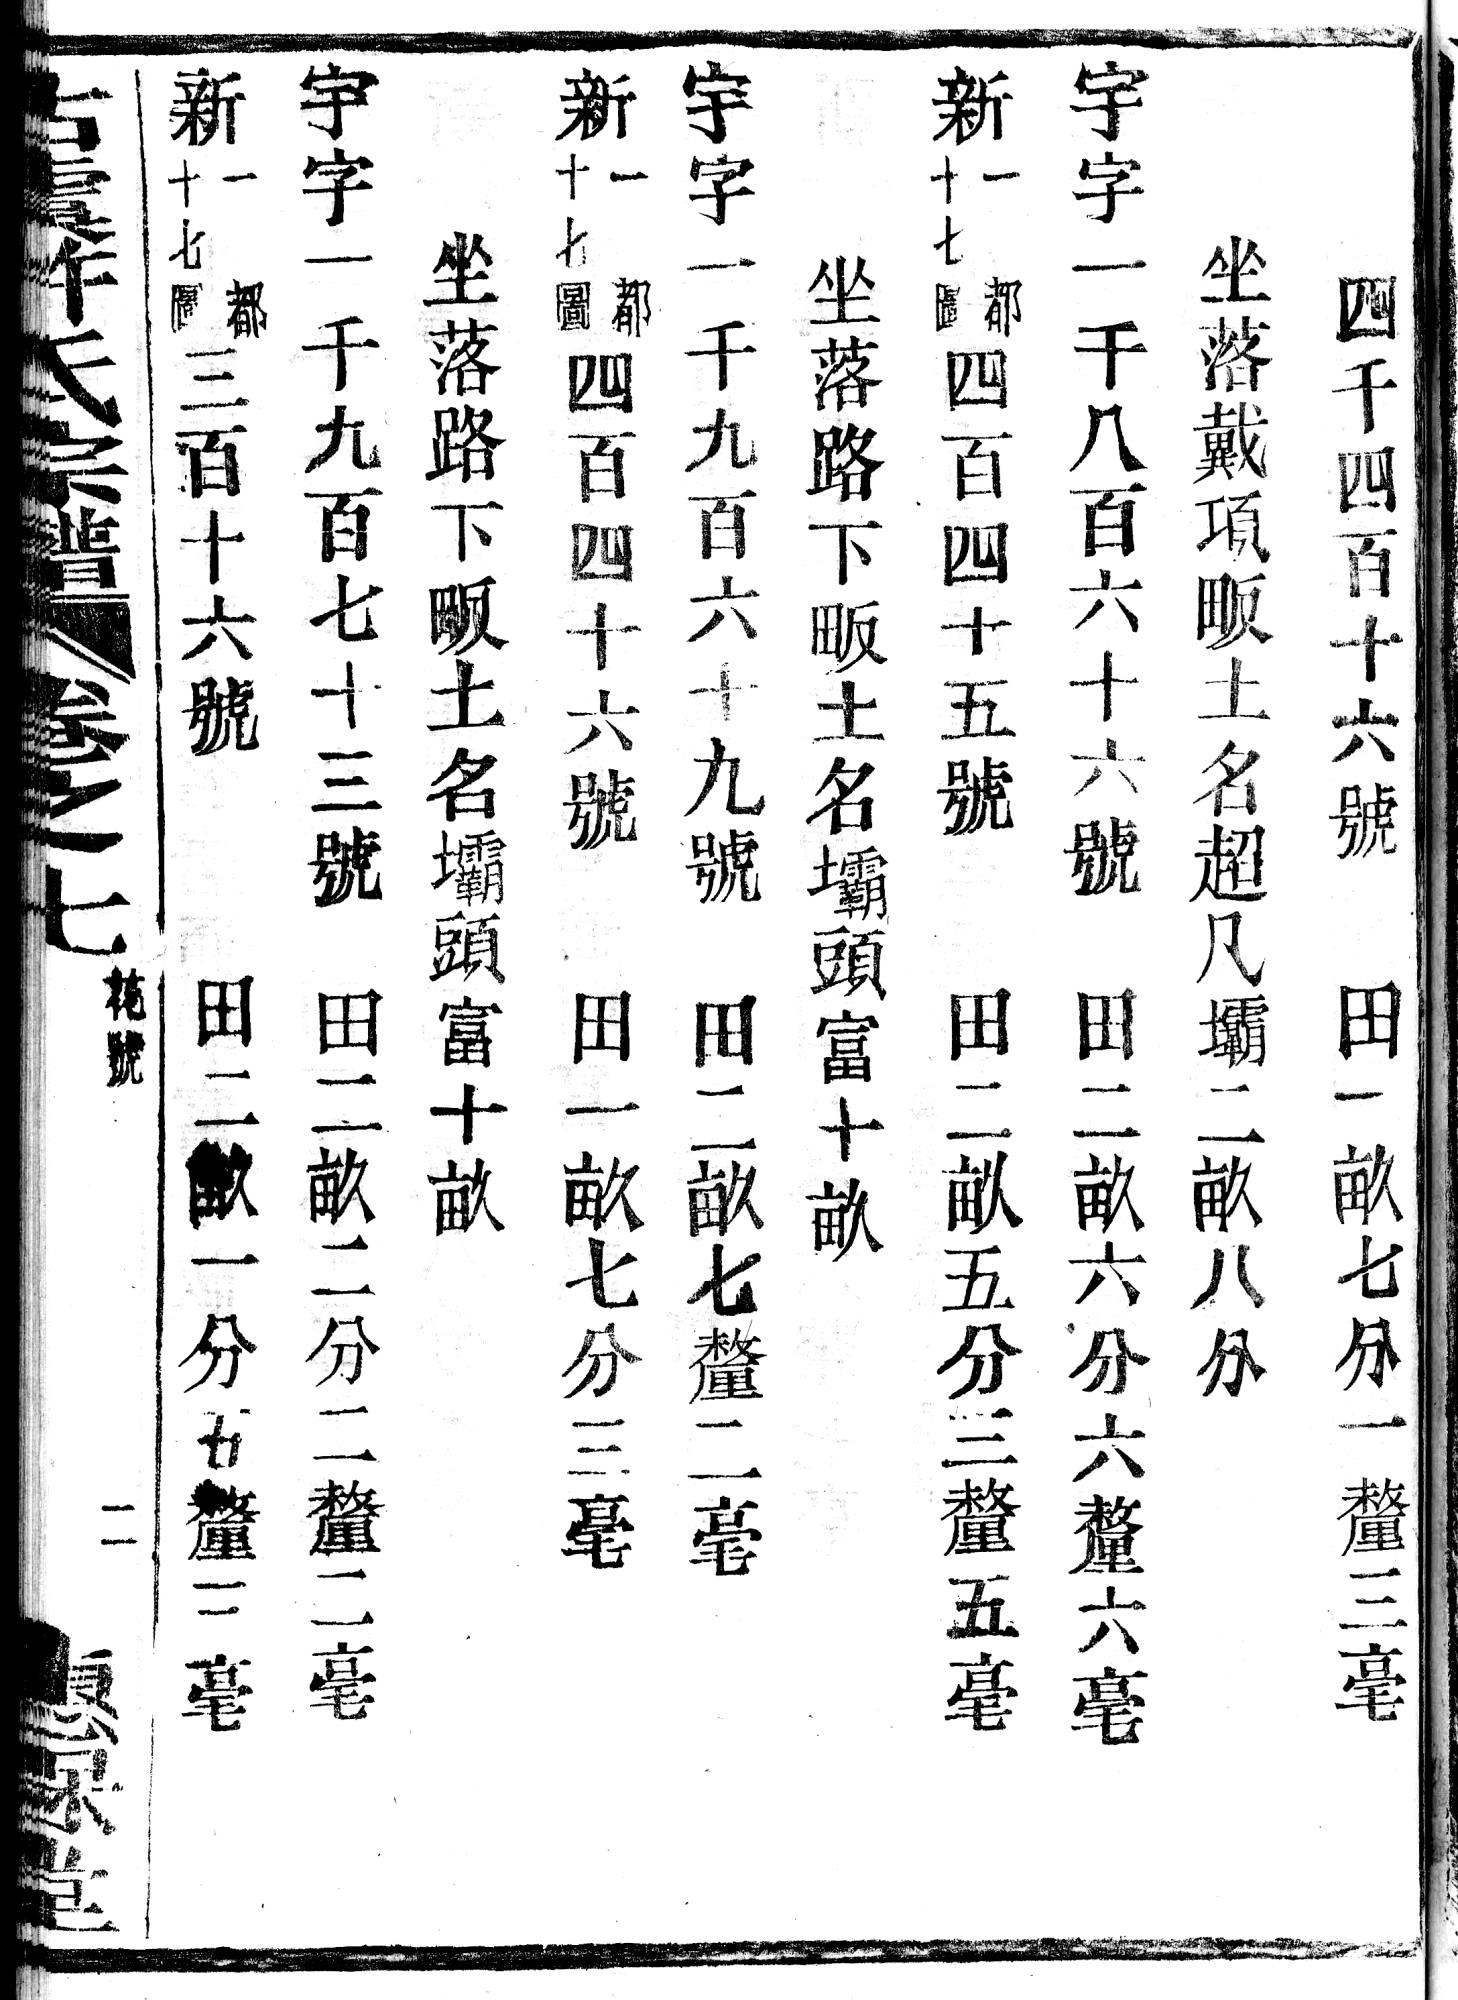 四千四百十六號　田一畝七分一釐三毫
坐落戴項畈土名超凡壩二畝八分
宇字一千八百六十六號　田二畝六分六釐六毫
新一都十七圖四百四十五號　田二畝五分三釐五毫
坐落路下畈土名壩頭富十畝
宇字一千九百六十九號　田二畝七釐二毫
新一都十七圖四百四十六號　田一畝七分三毫
坐落路下畈土名壩頭富十畝
宇字一千九百七十三號　田二畝二分二釐二毫
新一都十七圖三百十六號　田二畝一分釐三毫
古虞許氏宗譜　卷之七　號　二　堂